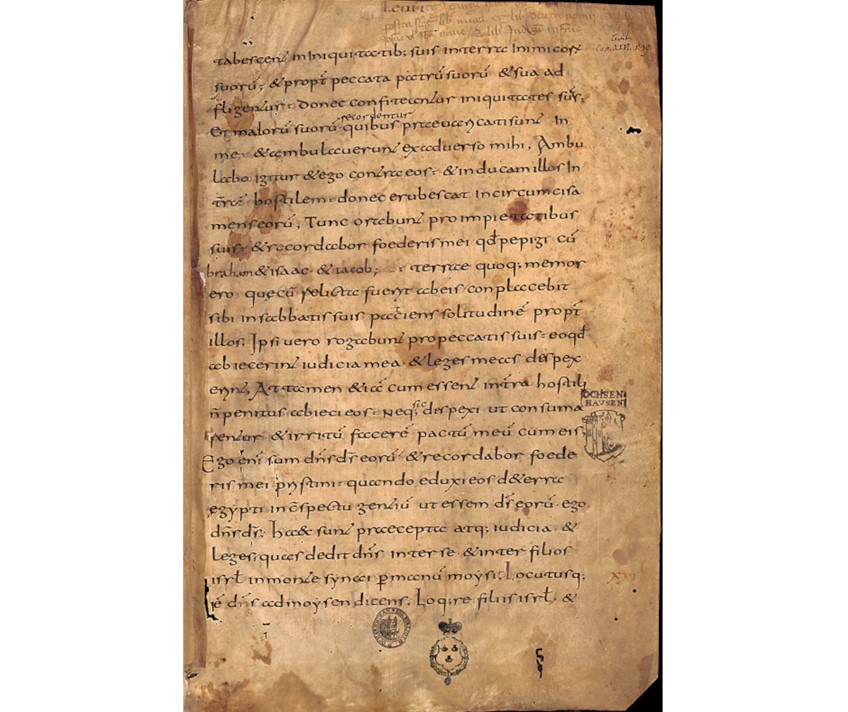 Leuiti
tabescent in iniquitatib; suis in terra inimicorū
suorū; & propt̄ peccata patrū suorū & sua ad
fligentur; donec confiteantur iniquitates suas;
recordentur
Et malorū suorū quibus praeuaricati sunt in
me; & ambulauerunt ex aduerso mihi, Ambu
labo igitur & ego contra eos; & inducam illos in
trā hostilem; donec erubescat incircumcisa
mens eorū, Tunc orabunt pro impietatibus
suis; & recordabor foederis mei qđ pepigi cū
braham & isaac & iacob; terrae quoq; memor
ero quę cū relicta fuerit ab eis conplacebit
sibi in sabbatis suis patiens solitudinē propt̄
illos; Ipsi uero rogabunt pro peccatis suis; eo qđ
abiecerint iudicia mea & leges meas dispex
erint, At tamen & iā cum essent in tra hostili
n̄ penitus abieci eos; neq; sic dispexi ut consuma
rentur & irritū facerē pactū meū cum eis
Ego enī sum dn̄s ds̄ eorū & recordabor foede
ris mei pristini; quando eduxi eos de terra
egypti in cōspectu gentiū ut essem ds̄ eorū ego
dn̄s ds̄; haec sunt praecepta atq; iudicia &
leges; quas dedit dn̄s inter se & inter filios
isrł in monte synai p manū moysi; Locutusq;
ē dn̄s ad moysen dicens; Loq;re filiis isrł &
OCHSEN
HAVSEN
XVI